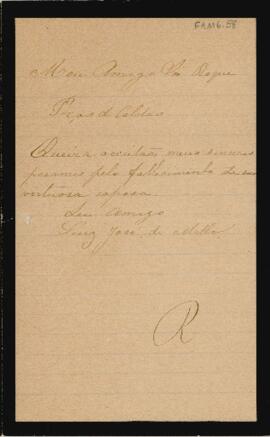 FAM6.58
Meu Amigo Sá Roque
Poços de Caldas
Queira acceitar meus sinceros
pesames pelo fallecimento de sua
virtuosa esposa
Seu Amigo
Luiz José de Mello
R